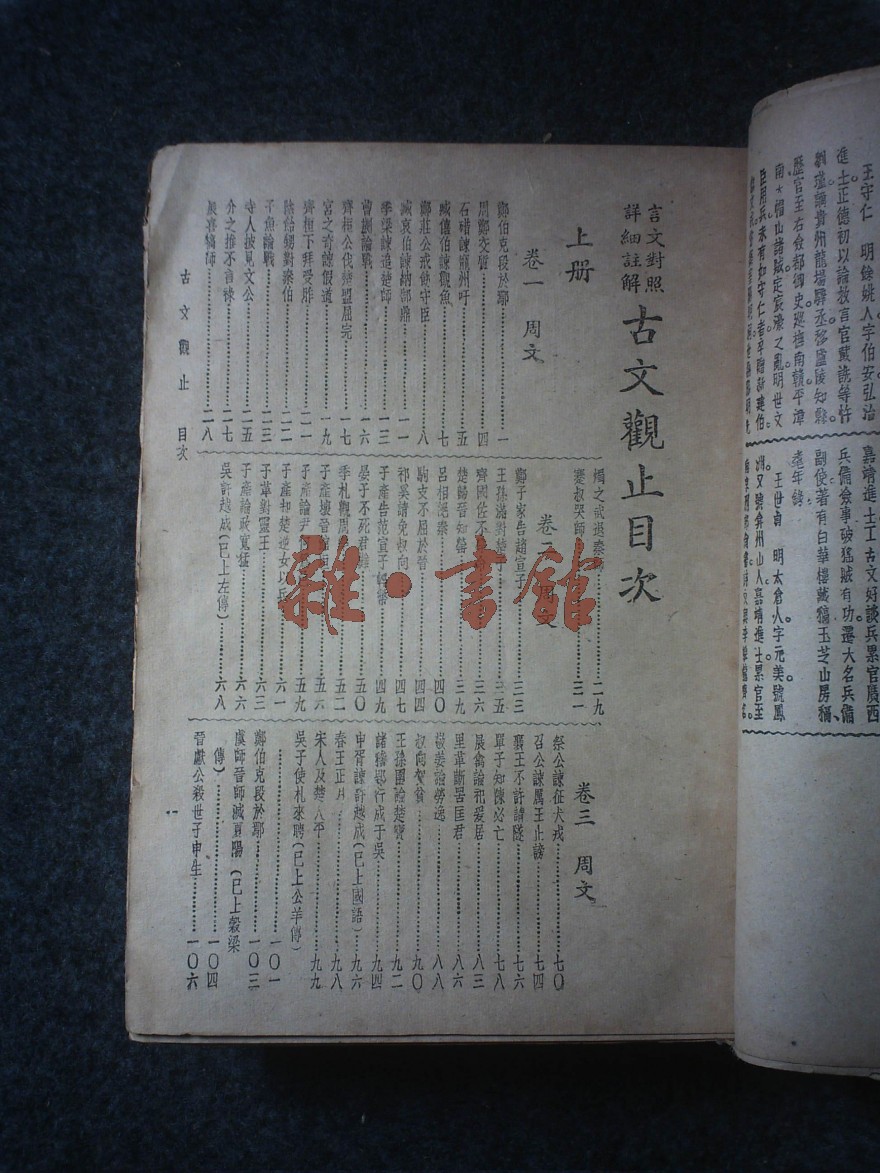 言文對照
詳細註解
古文觀止目次
上册
卷一 周文
鄭伯克段於鄢 一
周鄭交質 四
石碏諫寵州吁 五
臧僖伯諫觀魚 七
鄭莊公戒飭守臣 八
臧哀伯諫納郜鼎 一一
季梁諫追楚師 一三
曹劌論戰 一六
齊桓公伐楚盟屈完 一七
宮之奇諫假道 一九
齊桓下拜受胙 二一
陰飴甥對秦伯 二二
子魚論戰 二三
寺人披見文公 二五
介之推不言祿 二七
展喜犒師 二八
古文觀止 目次
燭之武退秦師 二九
蹇叔哭師 三一
卷二 周文
鄭子家告趙宣子 三三
王孫滿對楚子 三五
齊國佐不 三六
楚歸晉知罃 三九
呂相絕秦 四〇
駒支不屈於晉 四四
祁奚請免叔向 四七
子產告范宣子輕幣 四九
晏子不死君難 五〇
季札觀周 五二
子產壞晉館垣 五六
子產論尹 五九
子產却楚逆女以兵 六一
子革對靈王 六三
子產論政寬猛 六六
吳許越成(已上左傳) 六八
卷三 周文
祭公諫征犬戎 七〇
召公諫厲王止謗 七四
襄王不許請隧 七六
單子知陳必亡 七八
展禽論祀爰居 八三
里革斷罟匡君 八六
敬姜論勞逸 八八
叔向賀貧 九〇
王孫圉論楚寶 九二
諸稽郢行成于吳 九四
申胥諫許越成(已上國語) 九六
春王正月 九八
宋人及楚人平 九九
吳子使札來聘(已上公羊傳)
一〇一
鄭伯克段於鄢 一〇三
虞師晉師滅夏陽(已上穀梁
傳) 一〇四
晉獻公殺世子申生 一〇六
一
王守仁 明餘姚人字伯安弘治
進士正德初以論救言官戴銑等忤
劉瑾謫貴州龍場驛丞移廬陵知縣
歷官至右僉都御史巡撫南贛平漳
南大帽山諸賊定宸濠之亂明世文
臣用兵未有如守仁者卒贈新建伯
嘉靖進士工古文好談兵累官廣西
兵備僉事破猺賊有功遷大名兵備
副使著有白華樓藏稿玉芝山房稿
王世貞 明太倉人字元美號鳳
洲又號弇州山人嘉靖進士累官至
雜·書館